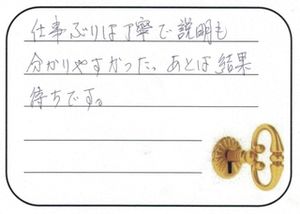 仕事ぶりは丁寧で説明も
分かりやすかった。あとは結果
待ちです。